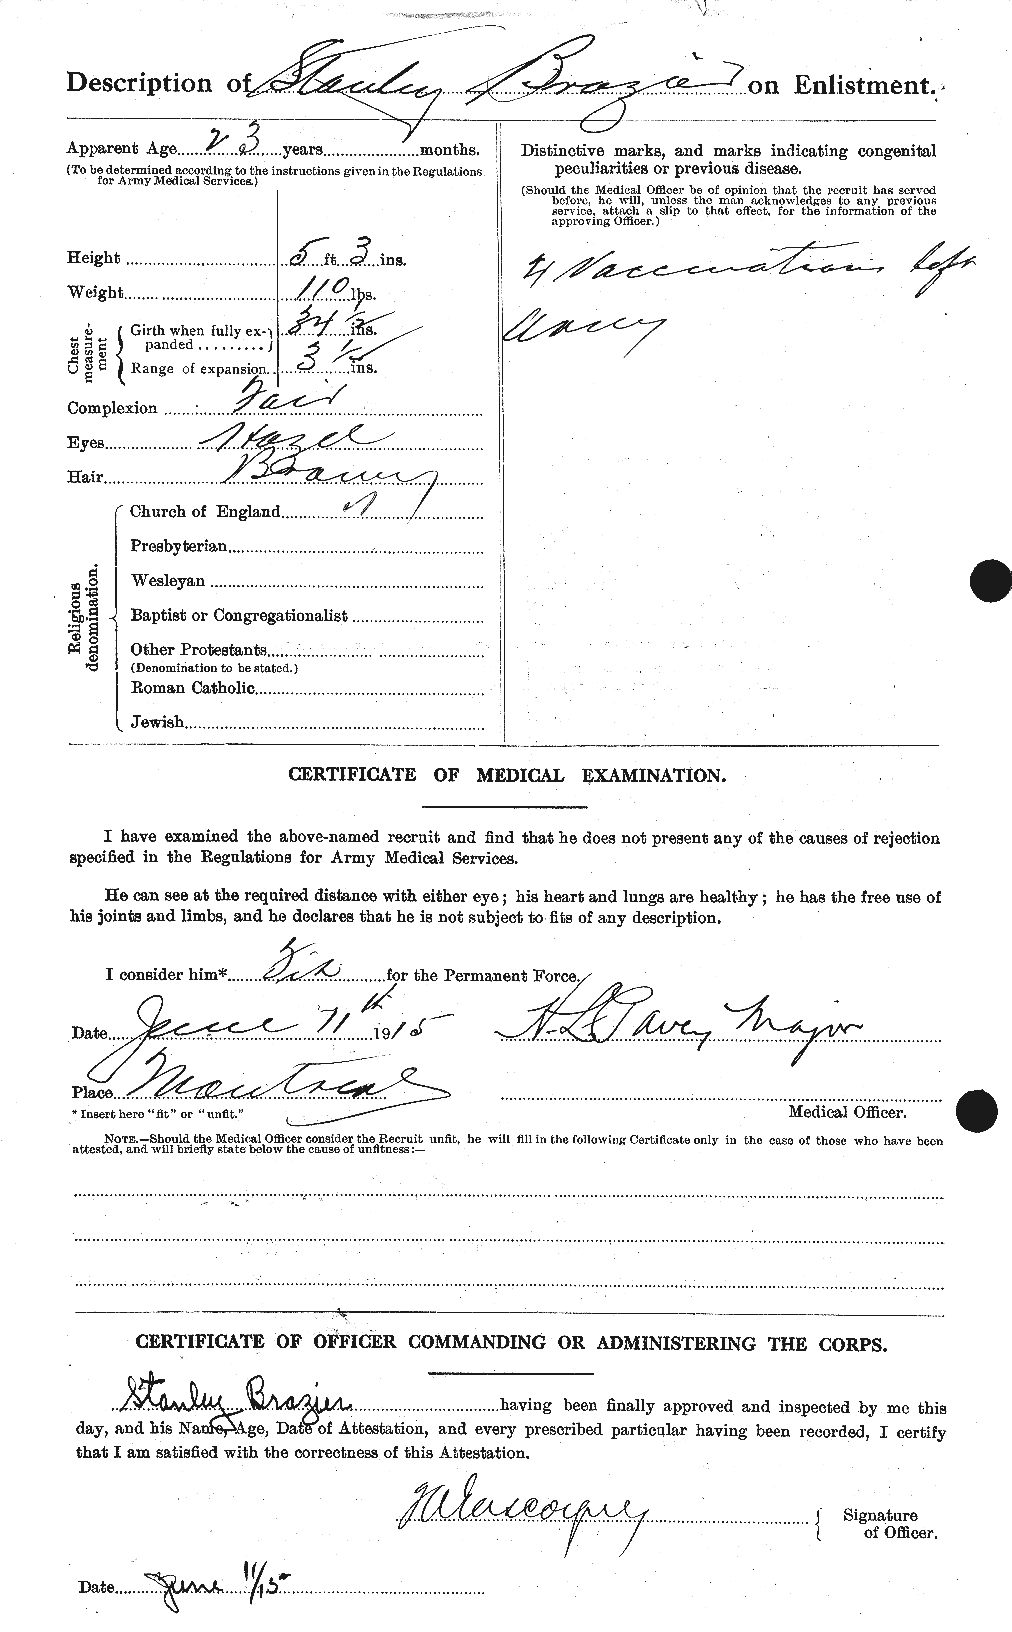 Description of Stanley Brazier on Enlistment.
Apparent Age 23 years months.
(To be determined according to the instructions given in the Regulations
for Army Medical Services.)
Height 5 ft 3 ins.
Weight 110 lbs.
Chest measurement
Girth when fully ex-
panded 34 1/2 ins.
Range of expansion 3 1/2 ins.
Complexion Fair
Eyes Hazel
Hair Brown
Religious denomination.
Church of England
Presbyterian
Wesleyan
Baptist or Congregationalist
Other Protestants
(Denomination to be stated.)
Roman Catholic
Jewish
Distinctive marks, and marks indicating congenital
peculiarities or previous disease.
(Should the Medical Officer be of opinion that the recruit has served
before, he will, unless the man acknowledges to any previous
service, attach a slip to that effect, for the information of the
approving Officer.)
4 Vaccinations left
CERTIFICATE OF MEDICAL EXAMINATION.
I have examined the above-named recruit and find that he does not present any of the causes of rejection
specified in the Regulations for Army Medical Services.
He can see at the required distance with either eye; his heart and lungs are healthy; he has the free use of
his joints and limbs, and he declares that he is not subject to fits of any description.
I consider him* Fit for the Permanent Force.
Date June 11th 1915 Major
Place Montreal
Medical Officer.
* Insert here "fit" or "unfit."
NOTE.—Should the Medical Officer consider the Recruit unfit, he will fill in the following Certificate only in the case of those who have been
attested, and will briefly state below the cause of unfitness:—
CERTIFICATE OF OFFICER COMMANDING OR ADMINISTERING THE CORPS.
Stanley Brazier having been finally approved and inspected by me this
day, and his Name, Age, Date of Attestation, and every prescribed particular having been recorded, I certify
that I am satisfied with the correctness of this Attestation.
Signature
of Officer.
Date June 11/15